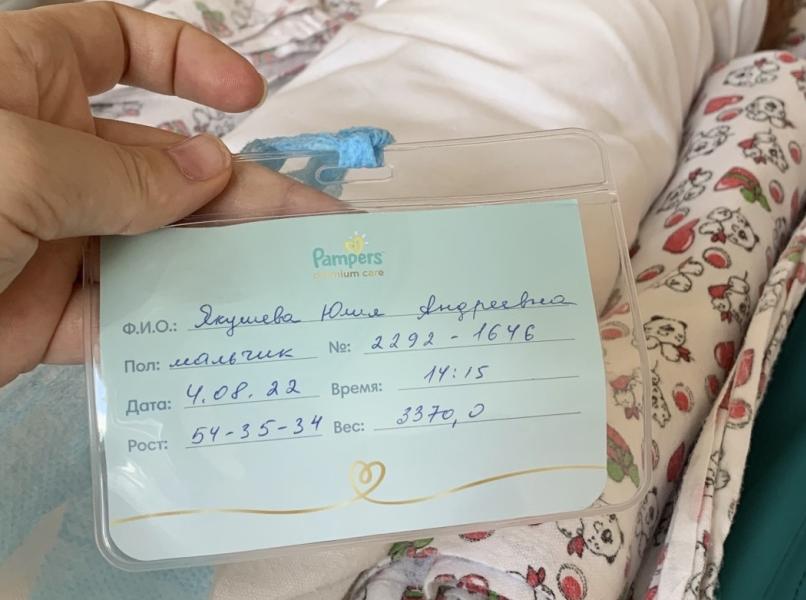 Pampers
premium care
Ф.И.О.: Якушева Юлия Андреевна
Пол: мальчик №: 2292-1646
Дата: 4.08.22 Время: 14:15
Рост: 54-35-34 Вес: 3370,0